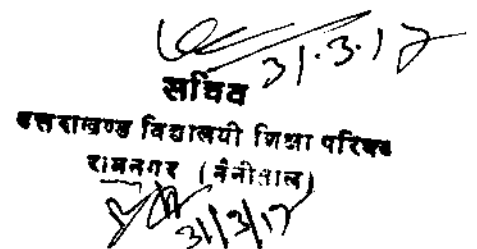 31.3.17
सचिव
उत्तराखण्ड विद्यालयी शिक्षा परिषद
रामनगर (नैनीताल)
31/3/17